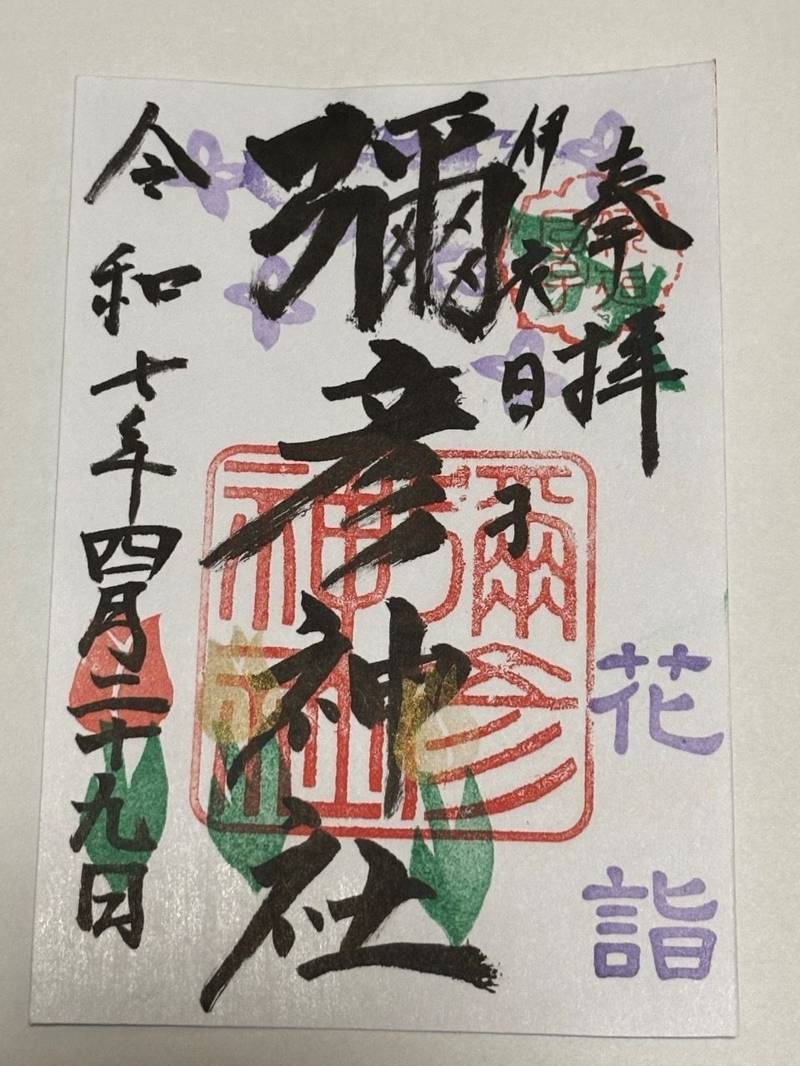 奉拝
花詣
伊夜日子
彌彦神社
彌彦
神社
令和七年四月二十九日